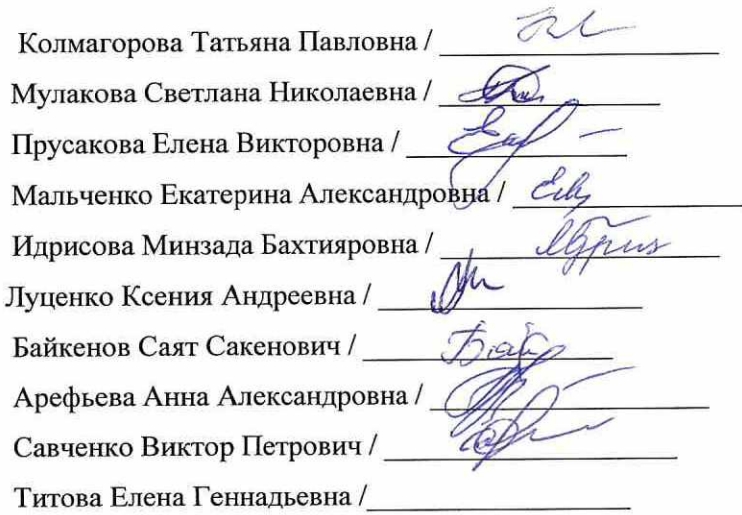 Колмагорова Татьяна Павловна /
Мулакова Светлана Николаевна /
Прусакова Елена Викторовна /
Мальченко Екатерина Александровна /
Идрисова Минзада Бахтияровна /
Луценко Ксения Андреевна /
Байкенов Саят Сакенович /
Арефьева Анна Александровна /
Савченко Виктор Петрович /
Титова Елена Геннадьевна /